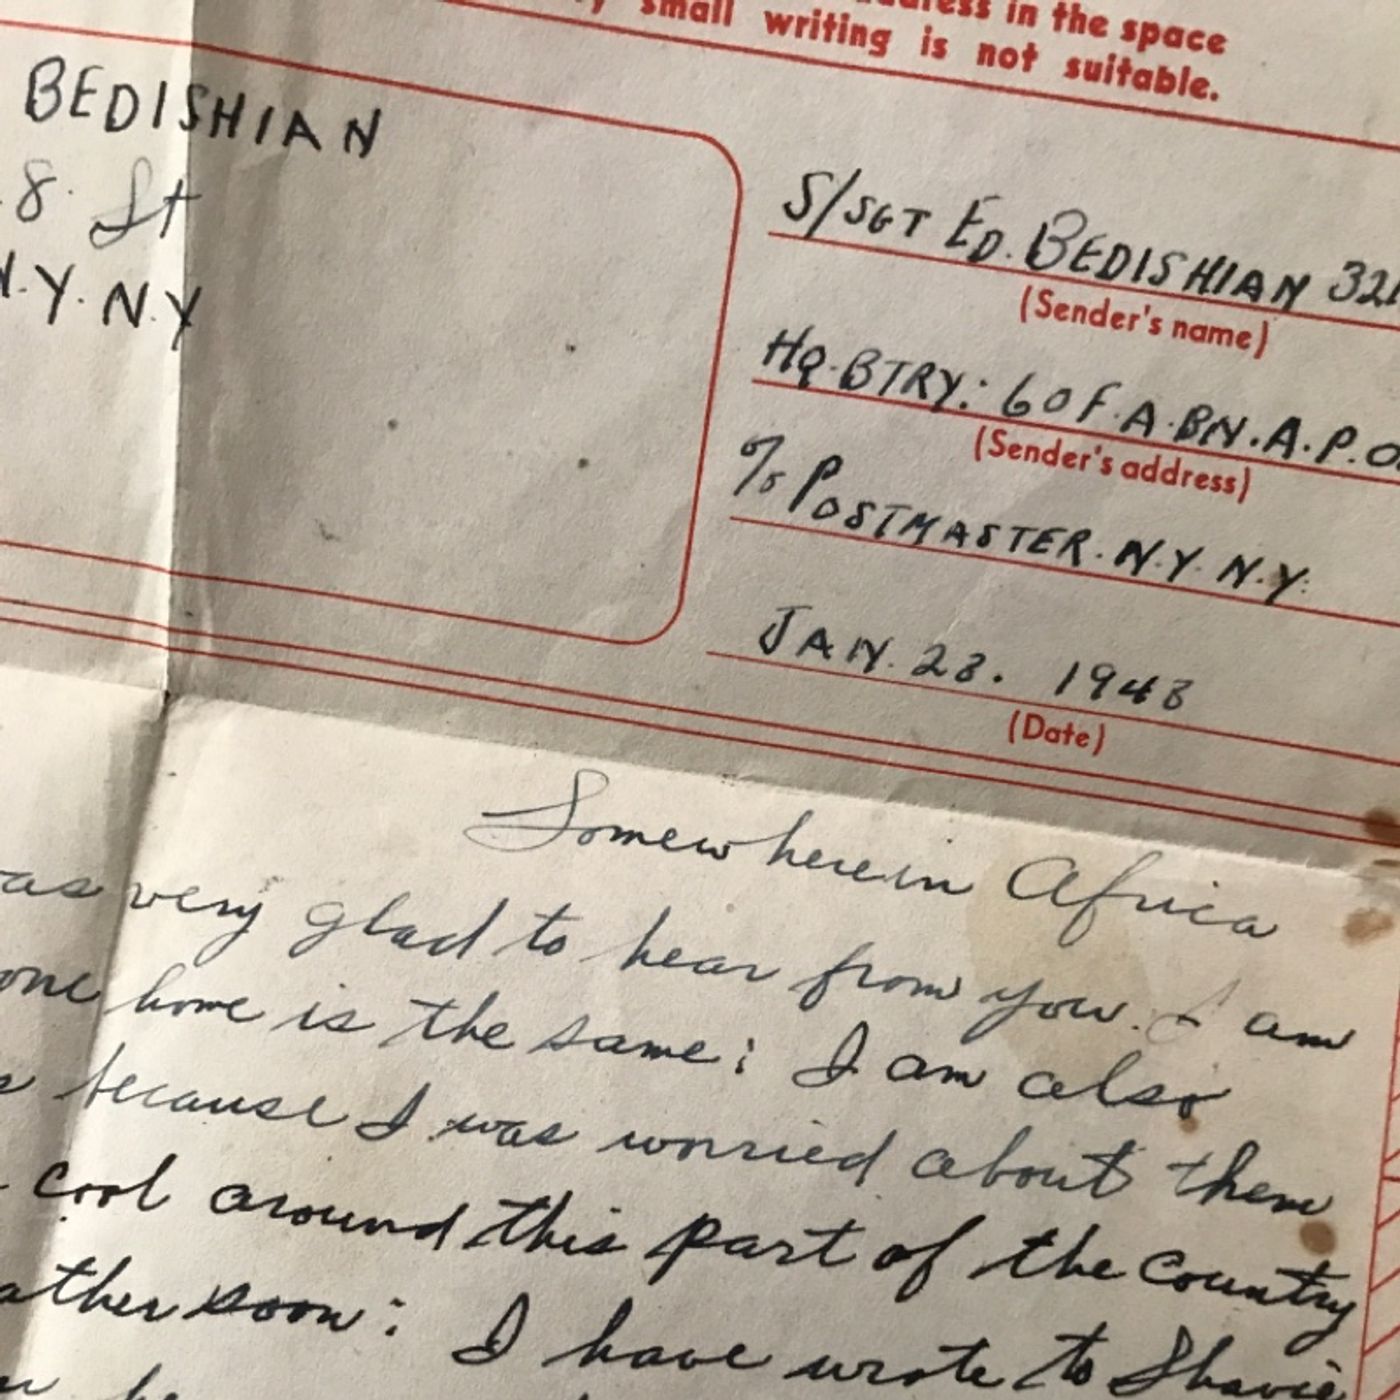 address in the space
small writing is not suitable.
BEDISHIAN
8. St
N.Y. N.Y
S/SGT ED. BEDISHIAN 32
(Sender's name)
HQ. BTRY.: 60 F.A. BN. A.P.O.
(Sender's address)
% POSTMASTER. N.Y. N.Y.
JAN. 28. 1943
(Date)
Somewhere in Africa
as very glad to hear from you. I am
one home is the same; I am also
because I was worried about them
cool around this part of the country
ather soon; I have wrote to